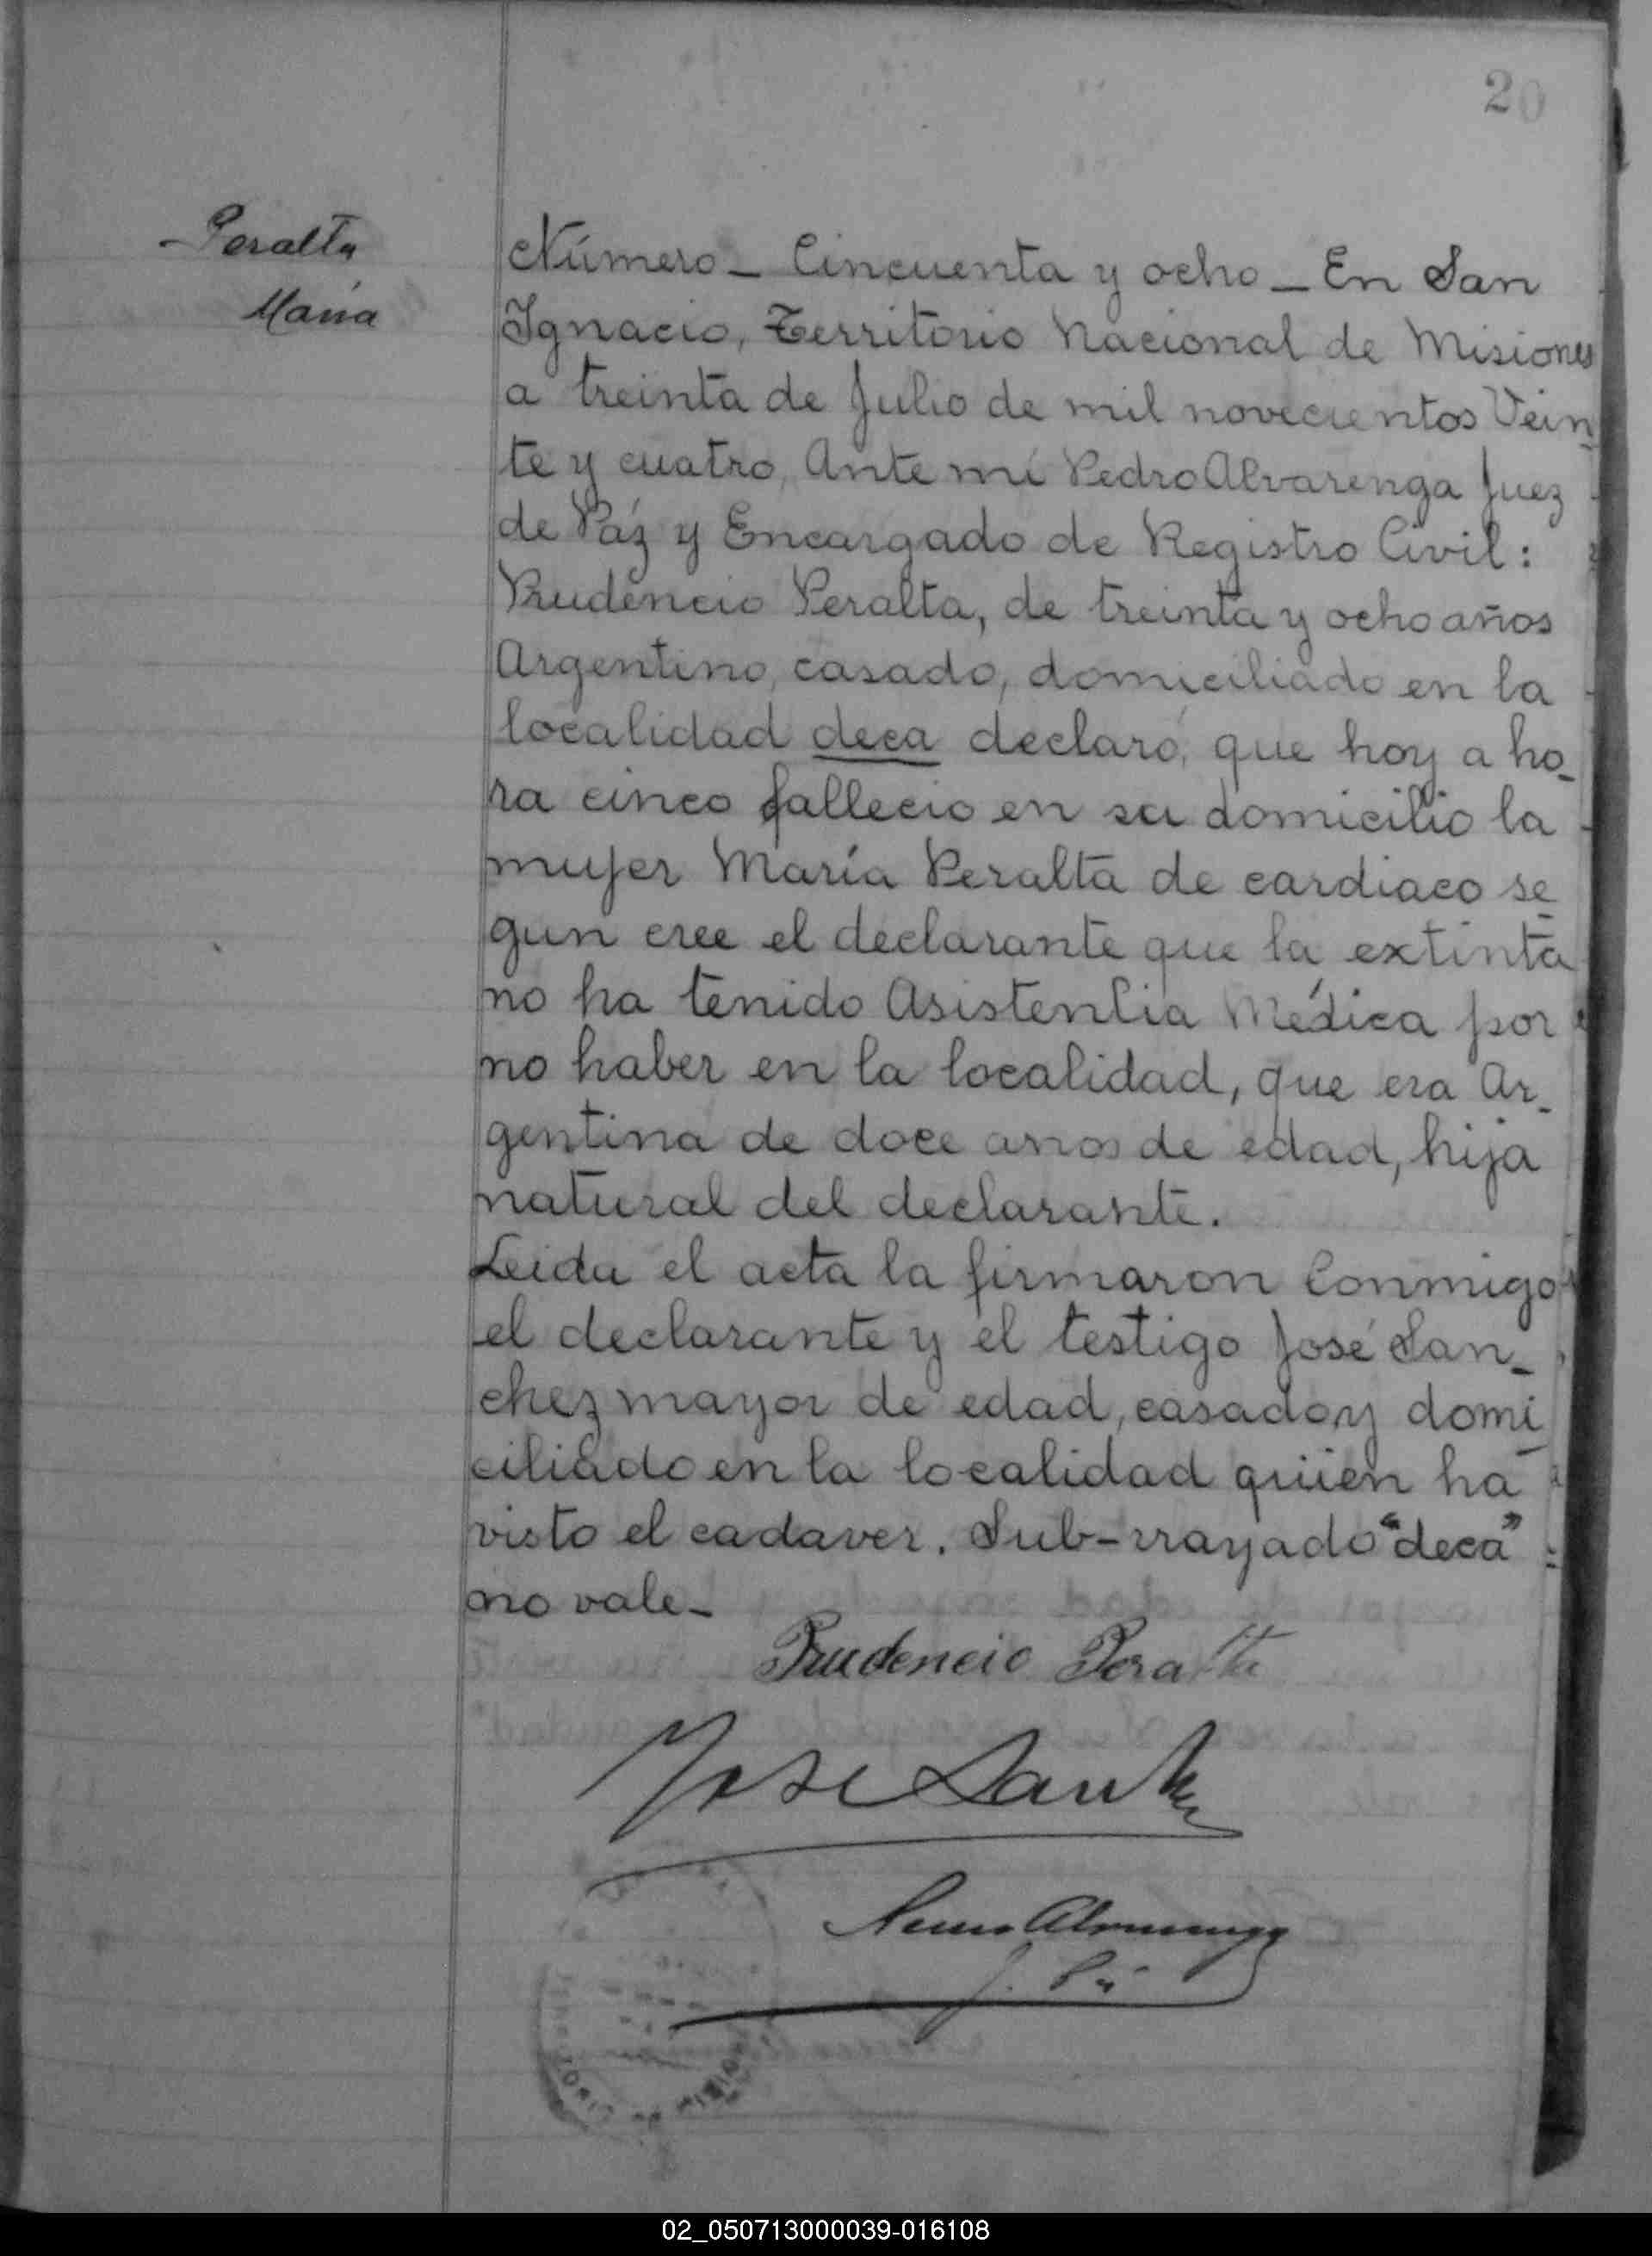 20
Peralta
María
Número - Cincuenta y ocho - En San
Ignacio, Territorio Nacional de Misiones
a treinta de Julio de mil novecientos Vein-
te y cuatro, Ante mí Pedro Alvarenga Juez
de Páz y Encargado de Registro Civil:
Prudencio Peralta, de treinta y ocho años
Argentino, casado, domiciliado en la
localidad deca declaró, que hoy a ho-
ra cinco fallecio en su domicilio la
mujer María Peralta de cardiaco se-
gun cree el declarante que la extinta
no ha tenido Asistencia Médica por
no haber en la localidad, que era Ar-
gentina de doce anos de edad, hija
natural del declarante.
Leida el acta la firmaron Conmigo
el declarante y el testigo José San-
chez mayor de edad, casado y domi-
ciliado en la localidad quien ha
visto el cadaver. Sub-rrayado "deca"
no vale -
Prudencio Peralta
Jose Sanchez
Alvarenga
J. Paz
02_050713000039-016108